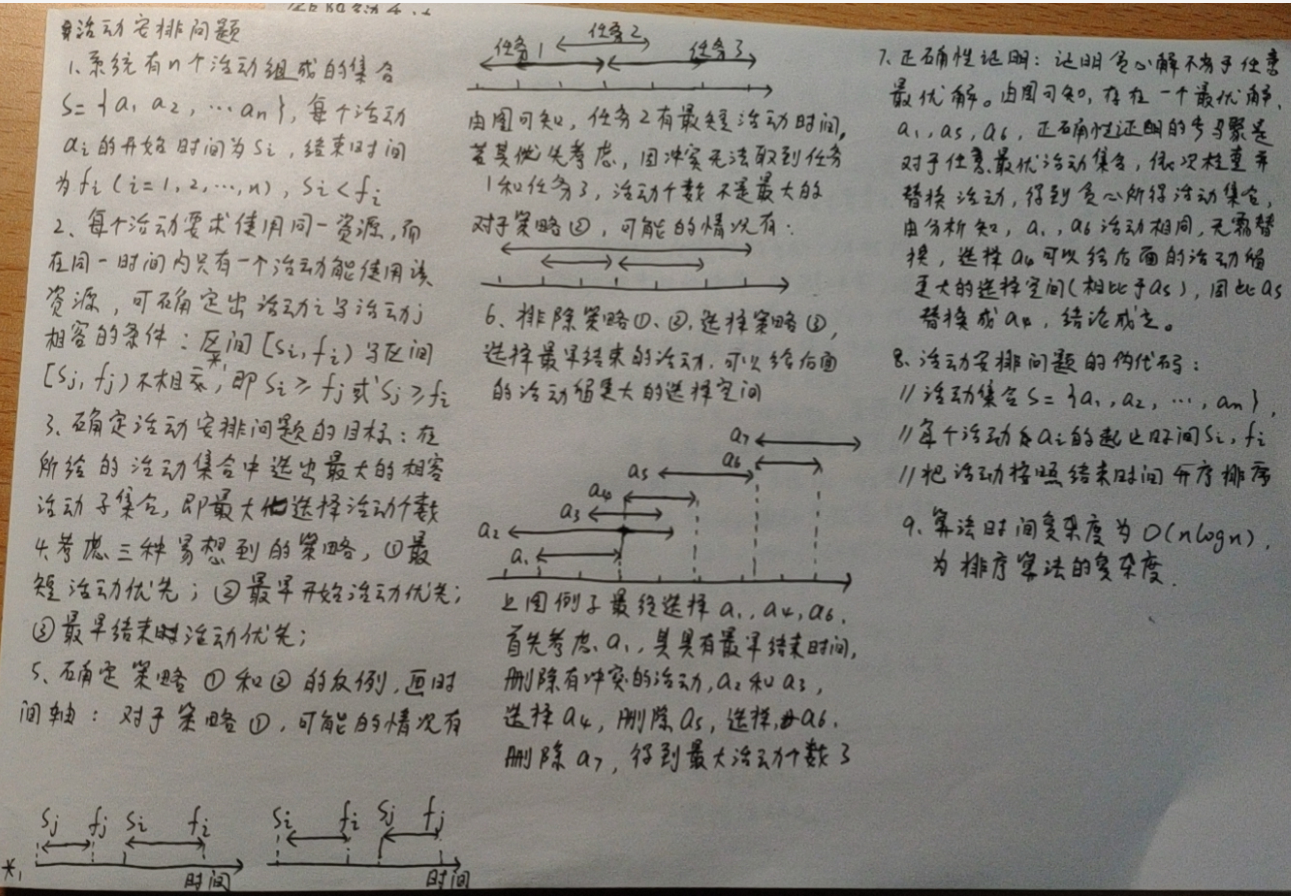 活动安排问题
1、系统有n个活动组成的集合
S={a₁ a₂, …aₙ}, 每个活动
aᵢ的开始时间为sᵢ, 结束时间
为fᵢ(i=1,2,…,n), sᵢ<fᵢ
2、每个活动要求使用同一资源, 而
在同一时间内只有一个活动能使用该
资源, 可确定出活动i与活动j
相容的条件: 区间[sᵢ,fᵢ)与区间
[sⱼ,fⱼ)不相交, 即sᵢ≥fⱼ或sⱼ≥fᵢ
3、确定活动安排问题的目标: 在
所给的活动集合中选出最大的相容
活动子集合, 即最大化选择活动个数
4、考虑三种易想到的策略, ①最
短活动优先; ②最早开始活动优先;
③最早结束时活动优先;
5、确定策略①和②的反例, 画时
间轴: 对于策略①, 可能的情况有
sⱼ fⱼ sᵢ fᵢ
*₁ 时间
sᵢ fᵢ sⱼ fⱼ
时间
任务1 任务2 任务3
由图可知, 任务2有最短活动时间,
若其优先考虑, 因冲突无法取到任务
1和任务3, 活动个数不是最大的
对于策略②, 可能的情况有:
6、排除策略①、②, 选择策略③,
选择最早结束的活动, 可以给后面
的活动留更大的选择空间
a₇
a₆
a₅
a₄
a₃
a₂
a₁
上图例子最终选择a₁, a₄, a₆.
首先考虑a₁, 其具有最早结束时间,
删除有冲突的活动, a₂和a₃,
选择a₄, 删除a₅, 选择a₆.
删除a₇, 得到最大活动个数3
7、正确性证明: 证明贪心解不劣于任意
最优解。由图可知, 存在一个最优解,
a₁, a₅, a₆, 正确性证明的步骤是
对于任意最优活动集合, 依次检查并
替换活动, 得到贪心所得活动集合,
由分析知, a₁, a₆活动相同, 无需替
换, 选择a₄可以给后面的活动留
更大的选择空间(相比于a₅), 因此a₅
替换成a₄, 结论成立。
8、活动安排问题的伪代码:
//活动集合S={a₁, a₂, …, aₙ},
//每个活动aᵢ的起止时间sᵢ, fᵢ
//把活动按照结束时间升序排序
9、算法时间复杂度为O(nlogn),
为排序算法的复杂度.